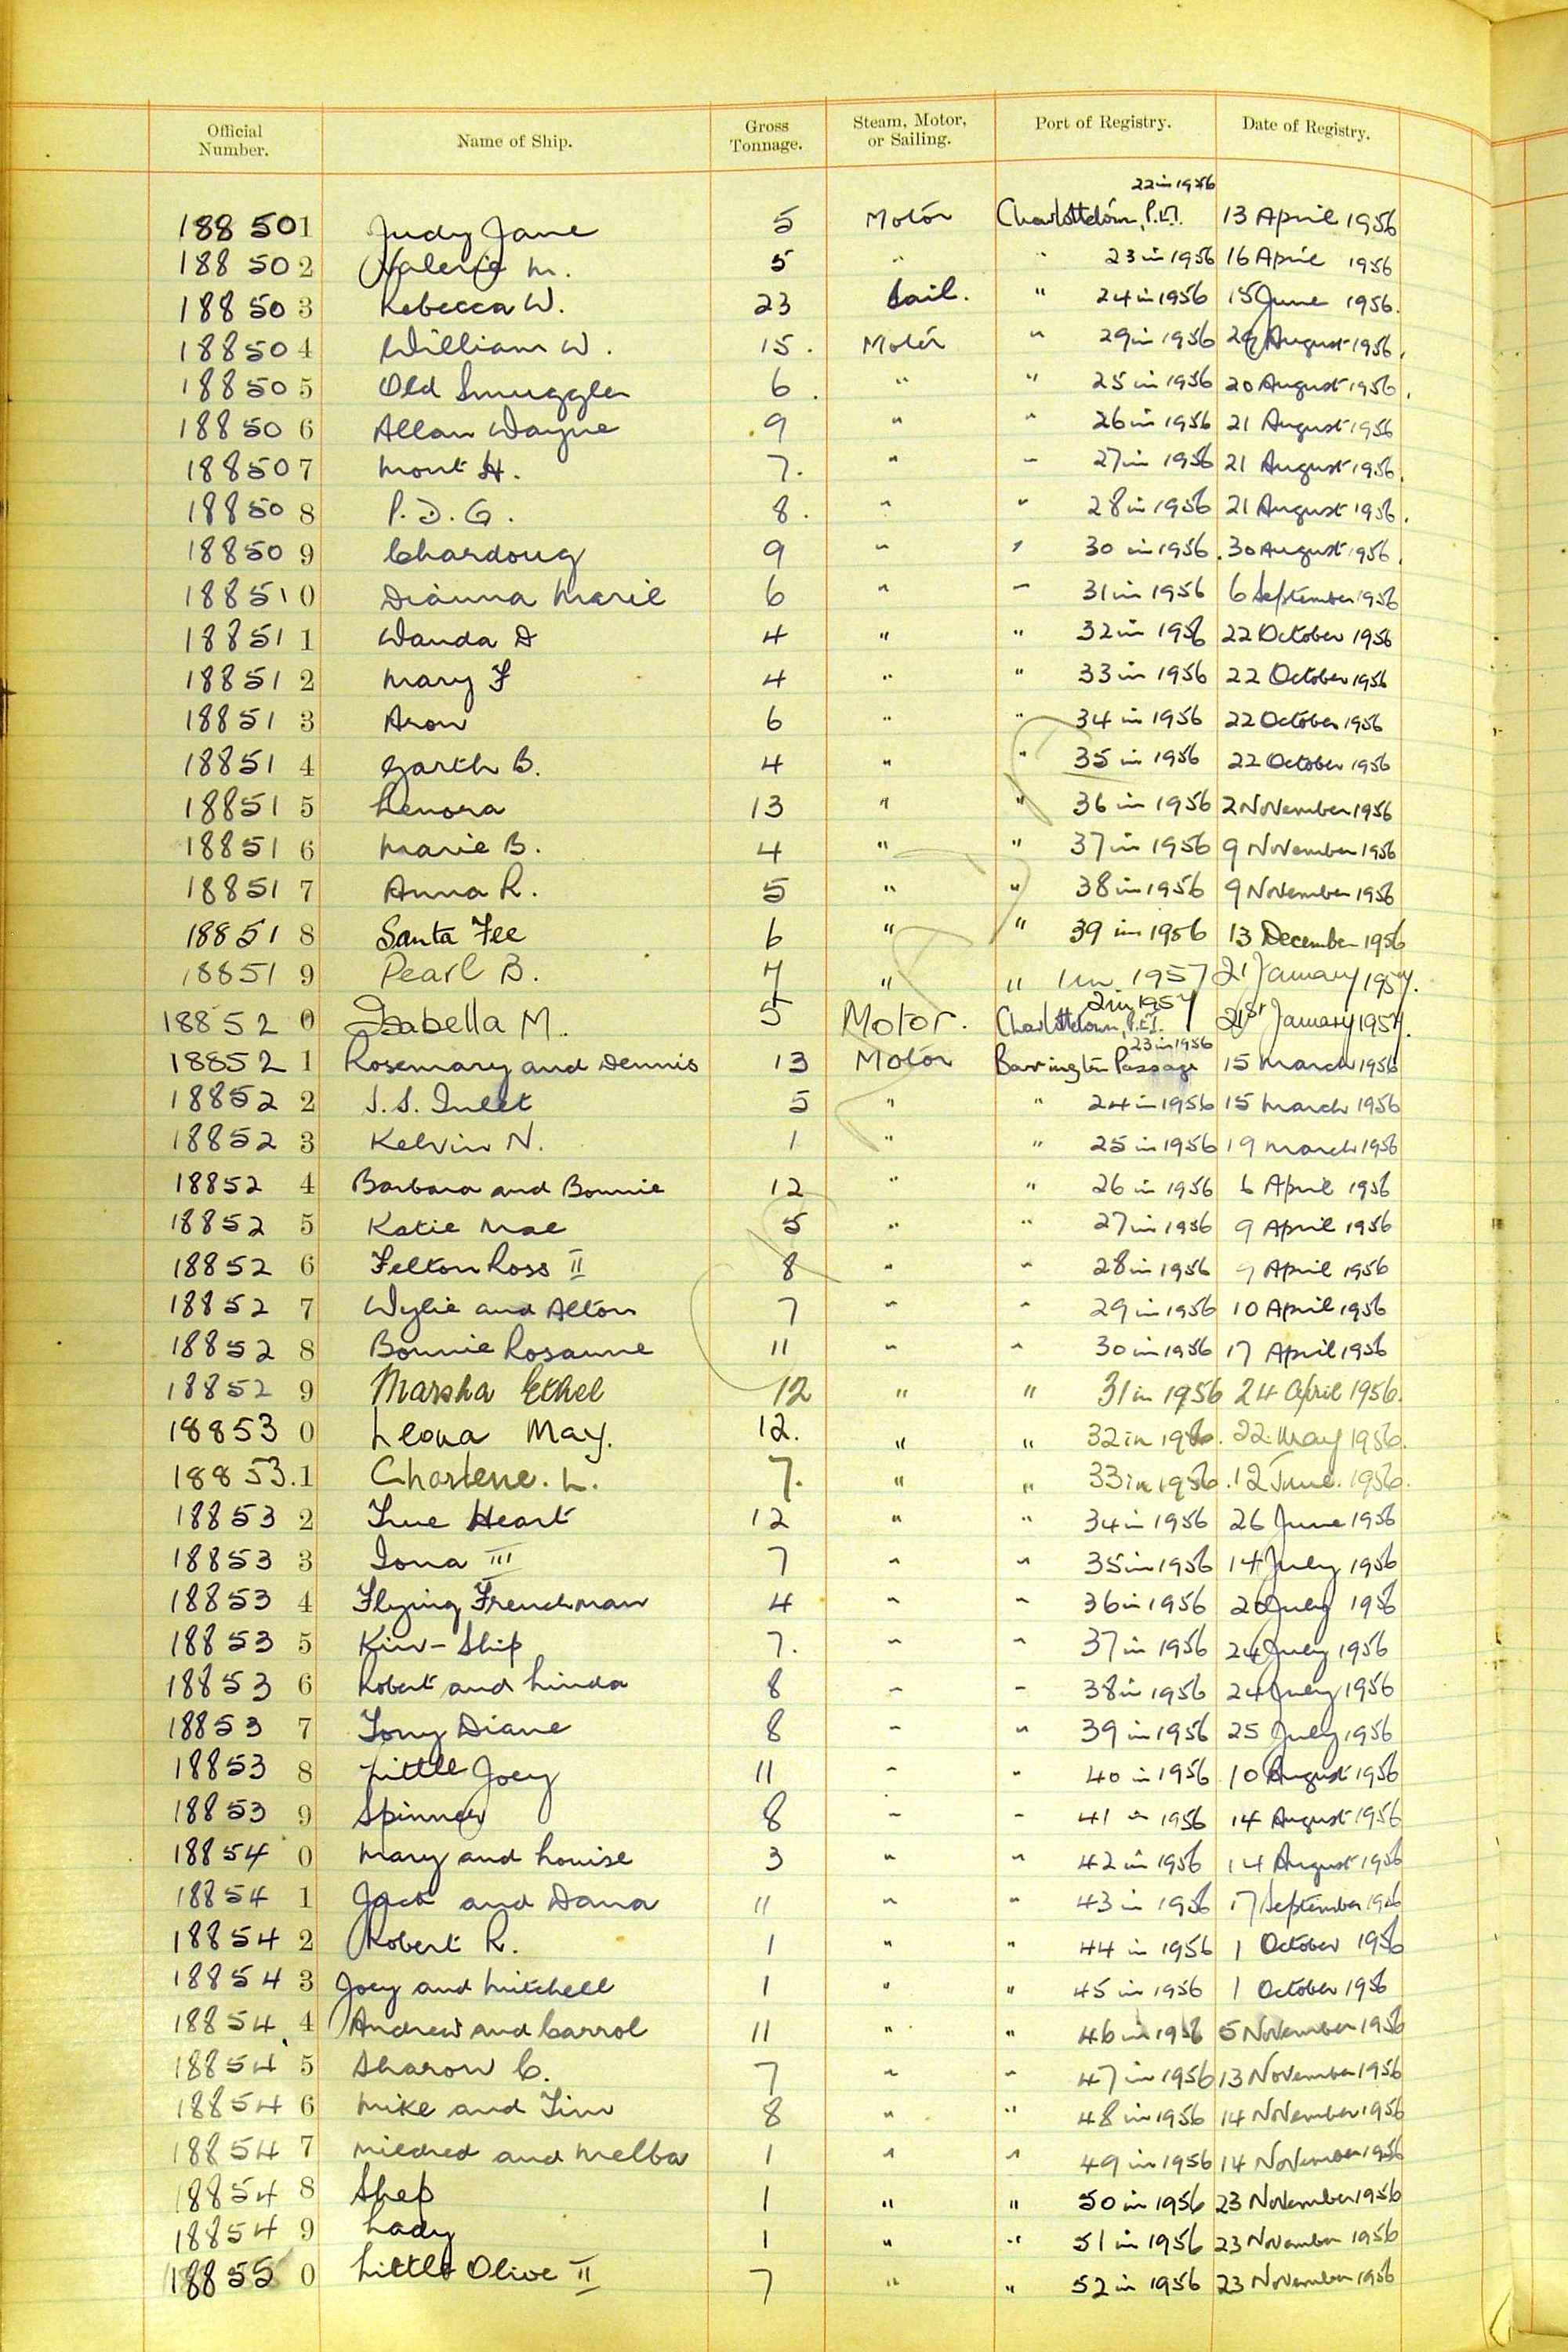 Official Number. Name of Ship. Gross Tonnage. Steam, Motor, or Sailing. Port of Registry. Date of Registry.
22 in 1956
188501 Judy Jane 5 Motor Charlottetown, P.E.I. 13 April 1956
188502 Valerie M. 5 " " 23 in 1956 16 April 1956
188503 Rebecca W. 23 Sail. " 24 in 1956 15 June 1956.
188504 William W. 15. Motor " 29 in 1956 29 August 1956.
188505 Old Smuggler 6. " " 25 in 1956 20 August 1956.
188506 Allan Wayne 9 " " 26 in 1956 21 August 1956
188507 Mont H. 7. " " 27 in 1956 21 August 1956.
188508 P.D.G. 8. " " 28 in 1956 21 August 1956.
188509 Chardoug 9 " " 30 in 1956. 30 August 1956.
188510 Dianna Marie 6 " " 31 in 1956 6 September 1956
188511 Wanda D 4 " " 32 in 1956 22 October 1956
188512 Mary F 4 " " 33 in 1956 22 October 1956
188513 Aron 6 " " 34 in 1956 22 October 1956
188514 Garth B. 4 " " 35 in 1956 22 October 1956
188515 Lenora 13 " " 36 in 1956 2 November 1956
188516 Marie B. 4 " " 37 in 1956 9 November 1956
188517 Anna R. 5 " " 38 in 1956 9 November 1956
188518 Santa Fee 6 " " 39 in 1956 13 December 1956
188519 Pearl B. 7 " " 1 in 1957 21 January 1957.
2 in 1957
188520 Isabella M. 5 Motor. Charlottetown, P.E.I. 21st January 1957.
23 in 1956
188521 Rosemary and Dennis 13 Motor Barrington Passage 15 March 1956
188522 S.S. Inlet 5 " " 24 in 1956 15 March 1956
188523 Kelvin N. 1 " " 25 in 1956 19 March 1956
188524 Barbara and Bonnie 12 " " 26 in 1956 6 April 1956
188525 Katie Mae 5 " " 27 in 1956 9 April 1956
188526 Felton Ross II 8 " " 28 in 1956 9 April 1956
188527 Wylie and Alton 7 " " 29 in 1956 10 April 1956
188528 Bonnie Rosanne 11 " " 30 in 1956 17 April 1956
188529 Marsha Ethel 12 " " 31 in 1956 24 April 1956.
188530 Leona May. 12. " " 32 in 1956. 22 May 1956.
188531 Charlene. L. 7. " " 33 in 1956. 12 June. 1956.
188532 True Heart 12 " " 34 in 1956 26 June 1956
188533 Iona III 7 " " 35 in 1956 14 July 1956
188534 Flying Frenchman 4 " " 36 in 1956 20 July 1956
188535 Kin-Ship 7. " " 37 in 1956 24 July 1956
188536 Robert and Linda 8 " " 38 in 1956 24 July 1956
188537 Tony Diane 8 " " 39 in 1956 25 July 1956
188538 Little Joey 11 " " 40 in 1956 10 August 1956
188539 Spinner 8 " " 41 in 1956 14 August 1956
188540 Mary and Louise 3 " " 42 in 1956 14 August 1956
188541 Jack and Dana 11 " " 43 in 1956 17 September 1956
188542 Robert R. 1 " " 44 in 1956 1 October 1956
188543 Joey and Mitchell 1 " " 45 in 1956 1 October 1956
188544 Andrew and Carrol 11 " " 46 in 1956 5 November 1956
188545 Sharon C. 7 " " 47 in 1956 13 November 1956
188546 Mike and Tim 8 " " 48 in 1956 14 November 1956
188547 Mildred and Melba 1 " " 49 in 1956 14 November 1956
188548 Shep 1 " " 50 in 1956 23 November 1956
188549 Lady 1 " " 51 in 1956 23 November 1956
188550 Little Olive II 7 " " 52 in 1956 23 November 1956